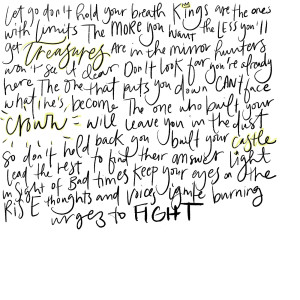 Let go don't hold your breath Kings are the ones
with limits The MORE you want the LESS you'll
get Treasures Are in the mirror hunters
won't see it clear Don't look far you're already
here The one that puts you down CANT face
what he's become The one who built your
Crown will leave you in the dust
So don't hold back you built your castle
lead the rest to find their answer light
in sight of Bad times keep your eyes on the
RISE thoughts and voices ignite burning
urges to FIGHT